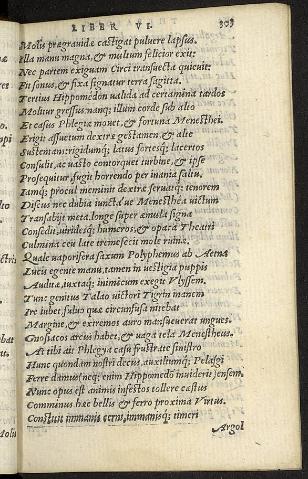 LIBER VI.
Molis prægravidæ castigat pulvere lapsus.
Illa manu magna, & multum felicior exit:
Nec partem exiguam Circi transuecta quieuit:
Fit sonus, & fixa signatur terra sagitta.
Tertius Hippomedon ualida ad certamina tardos
Molitur gressus: nanq; illum corde sub alto
Et casus Phlegiæ monet, & fortuna Menesthei.
Erigit assuetum dextræ gestamen, & alte
Sustentans: rigidumq; latus fortesq; lacertos
Consulit, ac uasto contorquet turbine, & ipse
Prosequitur. fugit horrendo per inania saltu,
Iamq; procul meminit dextræ, seruatq; tenorem
Discus nec dubia iunctaue Menesthea uictum
Transabijt meta. longe super æmula signa
Consedit, uiridesq; humeros, & opaca Theatri
Culmina ceu late tremefecit mole ruina.
Quale uaporifera saxum Polyphemus ab Aetna
Lucis egente manu, tamen in uestigia puppis
Auditæ, iuxtaq; inimicum exegit Ulyssem.
Tunc genitus Talao uictori Tigrin manem
Ire iubet, fuluo quæ circunfusa nitebat
Margine, & extremos auro mansueuerat ungues.
Gnosiacos arcus habet, & uaga tela Menestheus.
At tibi ait Phlegya casu frustrate sinistro
Hunc quondam nostri decus, auxiliumq; Pelasgi
Ferre damus: neq; enim Hippomedon inuiderit ensem.
Nunc opus est animis infestos tollere cæstus
Comminus. hæc bellis & ferro proxima Virtus.
Constitit immanis cerni, immanisq; timeri
Argol